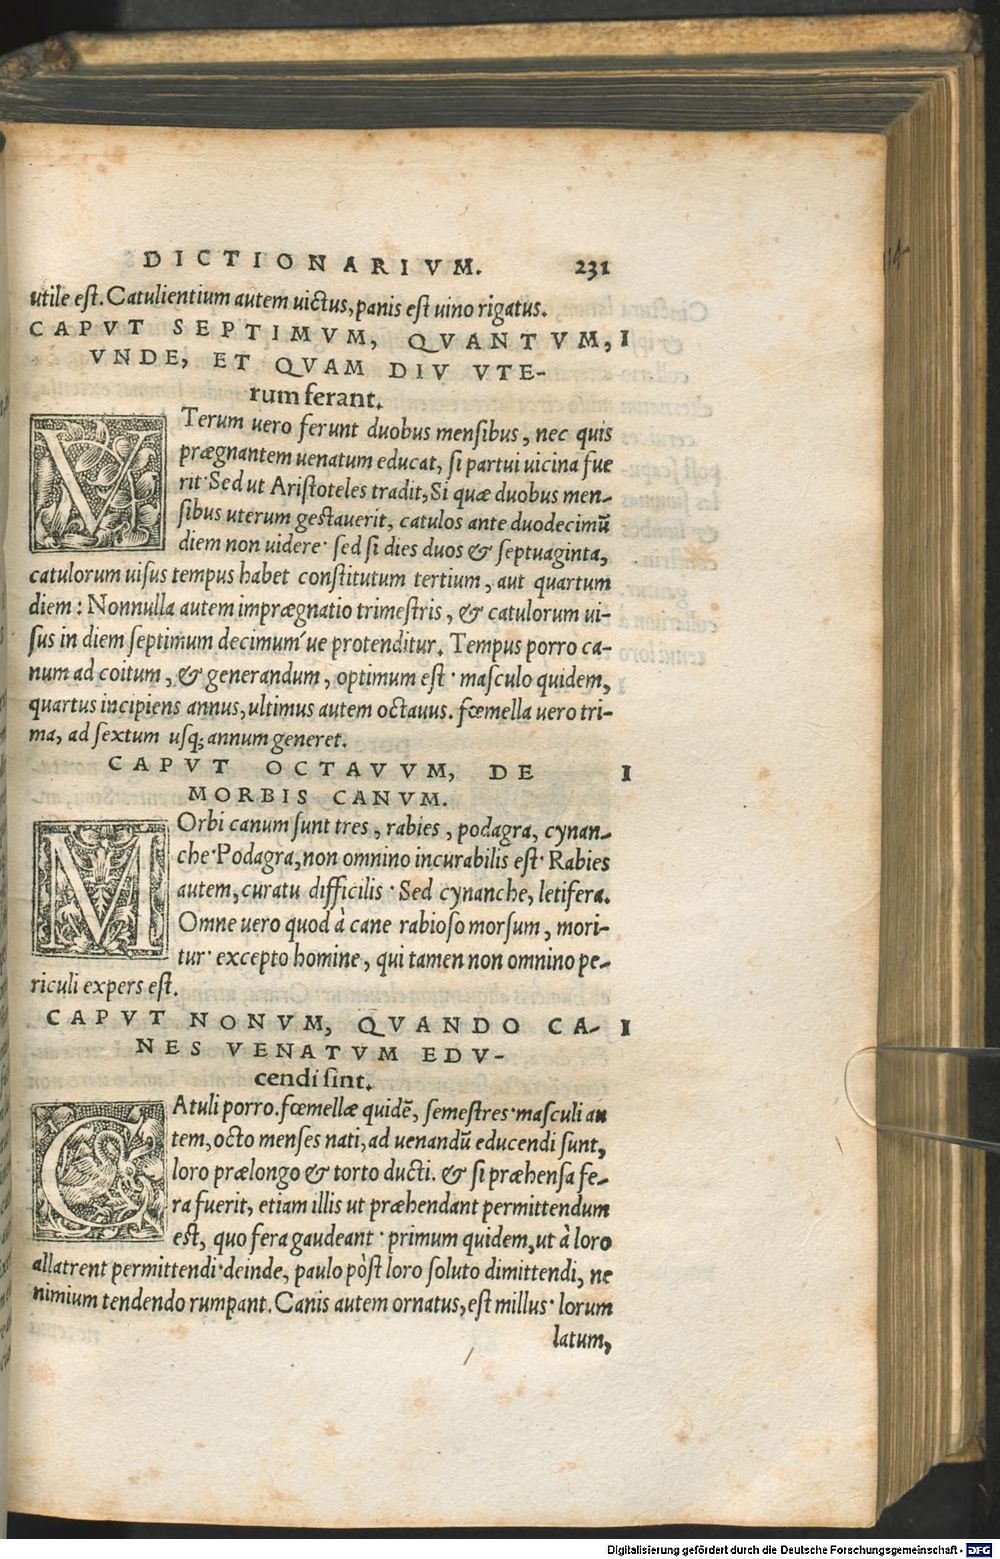 DICTIONARIVM. 231
utile eſt. Catulientium autem uictus, panis eſt uino rigatus.
CAPVT SEPTIMVM, QVANTVM, I
VNDE, ET QVAM DIV VTE-
rum ferant.
VTerum uero ferunt duobus menſibus, nec quis
prægnantem uenatum educat, ſi partui uicina fue
rit· Sed ut Ariſtoteles tradit, Si quæ duobus men-
ſibus uterum geſtauerit, catulos ante duodecimũ
diem non uidere· ſed ſi dies duos & ſeptuaginta,
catulorum uiſus tempus habet conſtitutum tertium, aut quartum
diem: Nonnulla autem imprægnatio trimeſtris, & catulorum ui-
ſus in diem ſeptimum decimum´ue protenditur. Tempus porro ca-
num ad coitum, & generandum, optimum eſt· maſculo quidem,
quartus incipiens annus, ultimus autem octauus. fœmella uero tri-
ma, ad ſextum uſq; annum generet.
CAPVT OCTAVVM, DE I
MORBIS CANVM.
MOrbi canum ſunt tres, rabies, podagra, cynan-
che· Podagra, non omnino incurabilis eſt· Rabies
autem, curatu difficilis· Sed cynanche, letifera.
Omne uero quod à cane rabioſo morſum, mori-
tur· excepto homine, qui tamen non omnino pe-
riculi expers eſt.
CAPVT NONVM, QVANDO CA- I
NES VENATVM EDV-
cendi ſint.
CAtuli porro. fœmellæ quidẽ, ſemeſtres· maſculi au
tem, octo menſes nati, ad uenandũ educendi ſunt,
loro prælongo & torto ducti. & ſi præhenſa fe-
ra fuerit, etiam illis ut præhendant permittendum
eſt, quo fera gaudeant· primum quidem, ut à loro
allatrent permittendi· deinde, paulo pòſt loro ſoluto dimittendi, ne
nimium tendendo rumpant. Canis autem ornatus, eſt millus· lorum
latum,
Digitalisierung gefördert durch die Deutsche Forschungsgemeinschaft - DFG